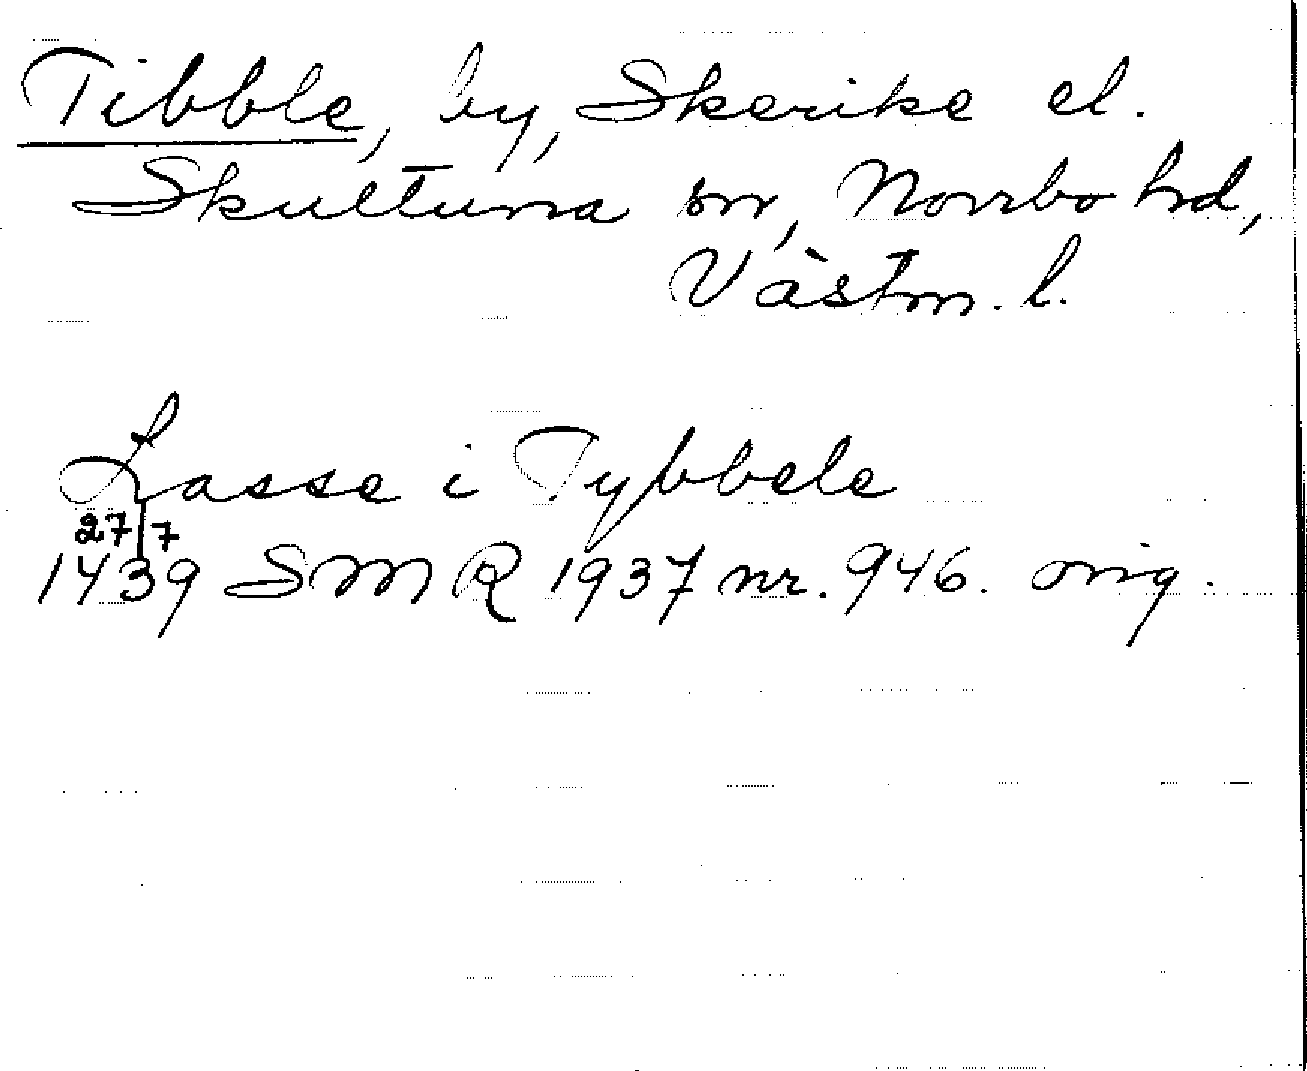 Tibble, by, Skerike el.
Skultuna sn, Norrbo hd,
Västm. l.
Lasse i Tybbele
27/7
1439 SMR 1937 nr. 946. orig.